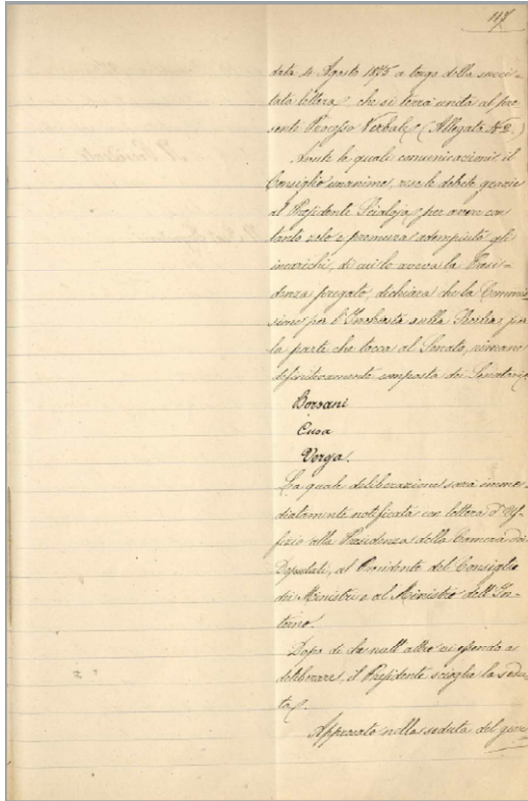 117
data 4 Agosto 1875 a tergo della succi-
tata lettera, che si terrà unita al pre
sente Processo Verbale (Allegato N° 2.)
Avute le quali comunicazioni il
Consiglio unanime, rese le debite grazie
al Presidente Scialoja, per avere con
tanto zelo e premura adempiuto gli
incarichi, di cui lo aveva la Presi-
denza pregato, dichiara che la Commis
sione per l'Inchiesta sulla Sicilia, per
la parte che tocca al Senato, rimane
definitivamente composta dei Senatori
Borsani
Cusa
Verga.
La quale deliberazione sarà imme-
diatamente notificata con lettera d'Uf-
fizio alla Presidenza della Camera dei
Deputati, al Presidente del Consiglio
dei Ministri e al Ministro dell'In-
terno.
Dopo di che null'altro essendo a
deliberare, il Presidente scioglie la sedu-
ta.
Approvato nella seduta del